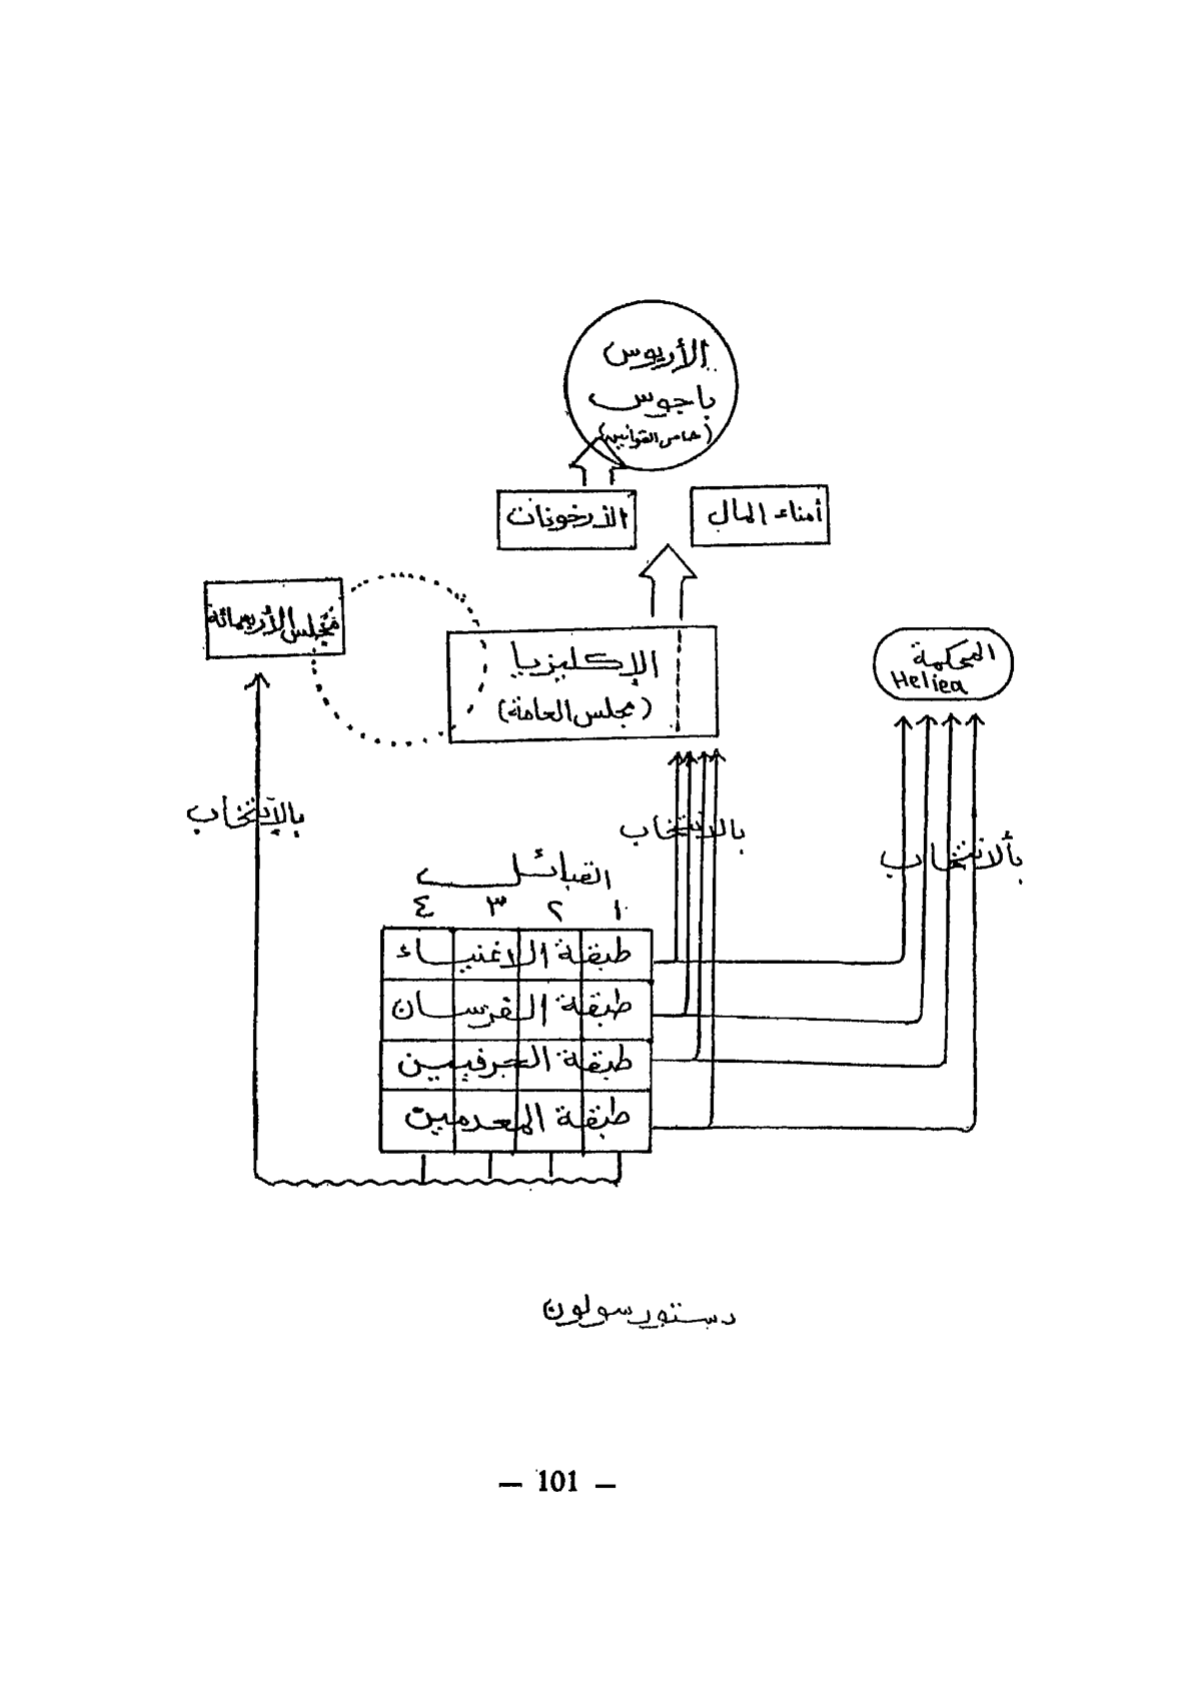 الأريوس
باجوس
(حامى القوانين)
الأرخونات
أمناء المال
مجلس الأربعمائة
الإكليزيا
(مجلس العامة)
المحكمة
Heliea
بالانتخاب
بالانتخاب
بألانتخاب
القبائل
١ ٢ ٣ ٤
طبقة الاغنياء
طبقة الفرسان
طبقة الحرفيين
طبقة المعدمين
دستور سولون
— 101 —